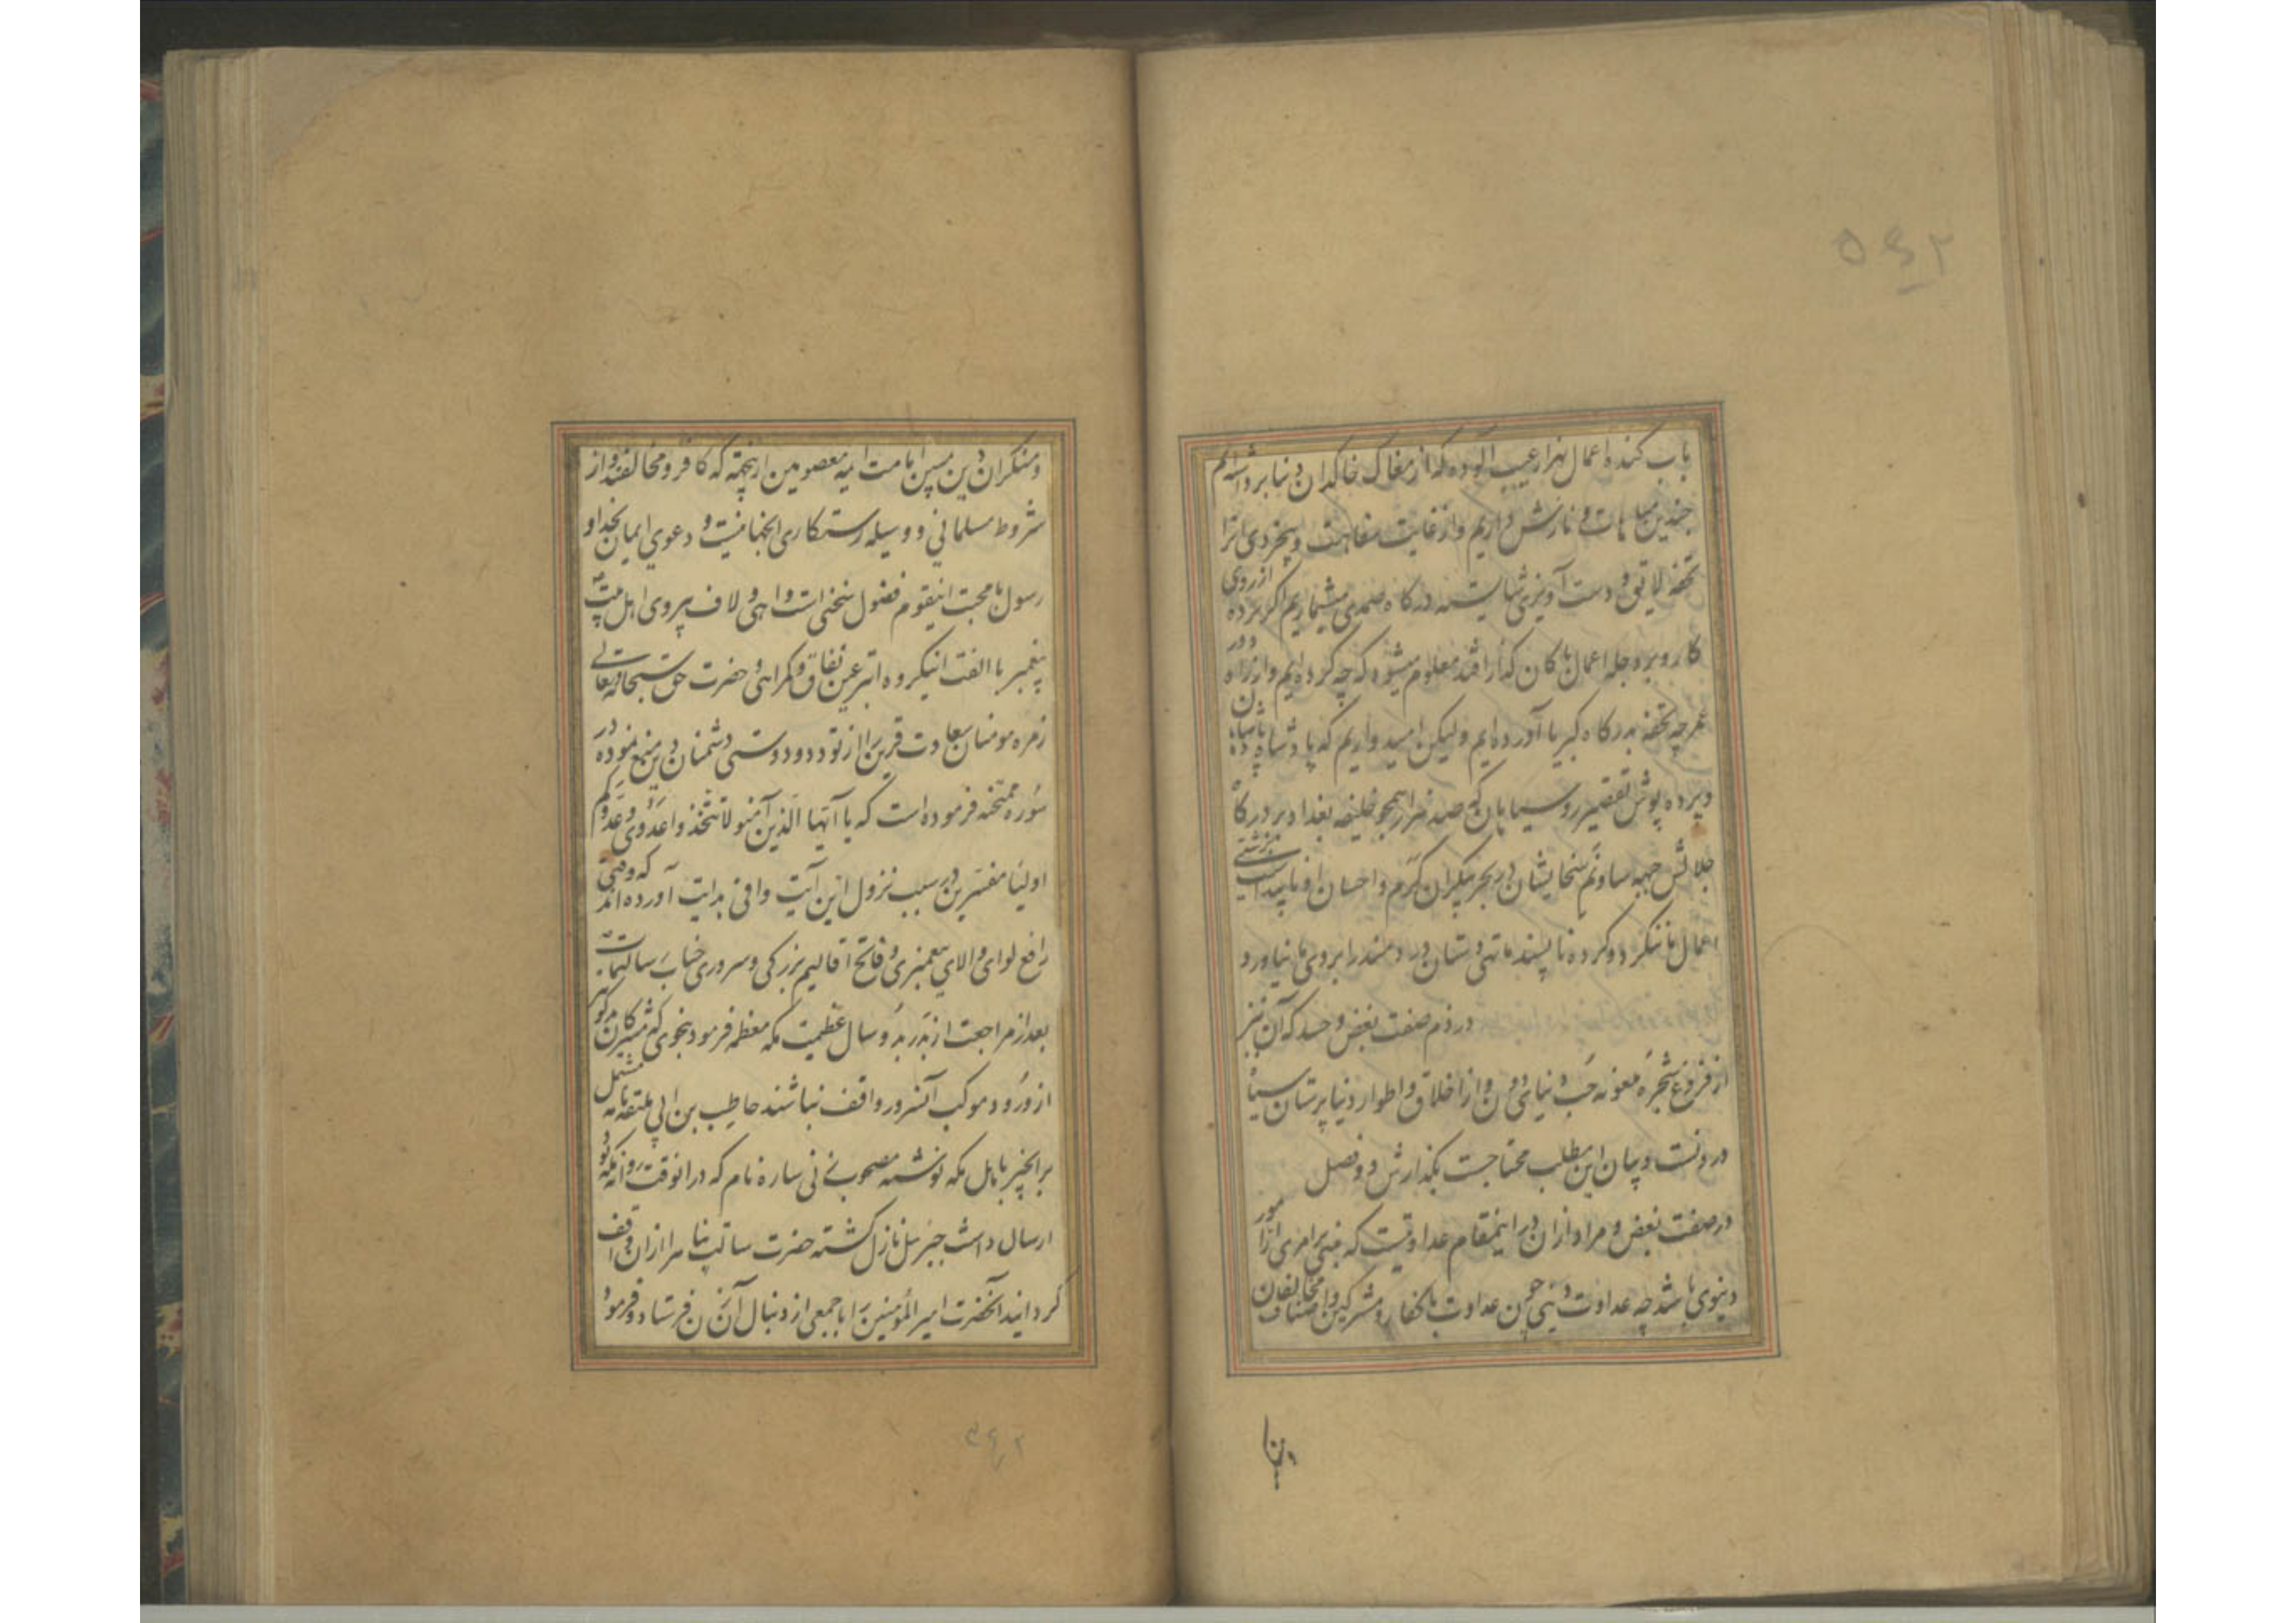 ۵۶۲
باب کنده اعمال هزار عیب آلوده که از مغاک خاکدان دنیا برداشته‌ایم
چندین مباهات و نازش داریم و از غایت سفاهت و بیخردی انرا
تحفه لایق و دست آویزی شایسته درگاه صمدی میشماریم اگر پرده از روی
کار و برده جمله اعمال ما کان گذارا فتد معلوم میشود که چه کرده‌ایم و از راه دور
عمر چه تحفه بدرگاه کبریا آورده‌ایم ولیکن امیدواریم که پادشاه پادشاهان
و پرده پوش تقصیر روسیاهان که صد هزار همچو خلیفه بغداد بر درگاه
جلالش جبهه ساو نم سخایشان در بحر بیکران کرم و احسان او ناپیداست بزشتی
اعمال ما ننگرد و کرده ناپسند ما تهی دستان دردمند را بروی ما نیاورد
در ذم صفت بغض و حسد که آن نیز
از فروع شجره معونه حب دنیای دون و از اخلاق و اطوار دنیا پرستان سیاه
درونست و بیان این مطلب محتاجست بگذارش دو فصل
در صفت بغض و مراد از ان در اینمقام عداوتیست که مبنی بر امری از امور
دنیوی باشد چه عداوت دینی چون عداوت با کفار و مشرکین و اصناف مخالفان
و منکران دین مبین امامت ایمه معصومین ازینجهة که کافر و مخالفند و از
شروط مسلمانی و وسیله رستکاری انجهانیست و دعوی ایمان بخدا و
رسول با محبت اینقوم فضول سخنی است واهی و لاف پیروی اهل بیت
پیغمبر با الفت اینکروه ابتر عین نفاق و کمراهی حضرت حق سبحانه و تعالی
زمره مومنان سعادت قرین را از تودد و دوستی دشمنان دین منع نموده در
سوره ممتحنه فرموده است که یا ایها الذین آمنو لا تتخذوا عدوی و عدوکم
اولیا مفسرین در سبب نزول این آیت وافی هدایت آورده‌اند که وقتی
رافع لوای والای پیغمبری و فاتح اقالیم بزرکی و سروری جناب رسالتماب
بعد از مراجعت از بدر بدو سال عظیمت مکه معظمه فرمود بنحوی که مشرکان مذکور
از ورود موکب آنسرور واقف نباشند حاطب بن ابی بلتعه نامه مشتمل
بر اینخبر باهل مکه نوشته مصحوب زنی ساره نام که در انوقت روانه مکه بود
ارسال داشت جبرئیل نازل کشته حضرت رسالت پناه را از ان واقف
کردانید انحضرت امیر المؤمنین را با جمعی از دنبال آن زن فرستاد و فرمود